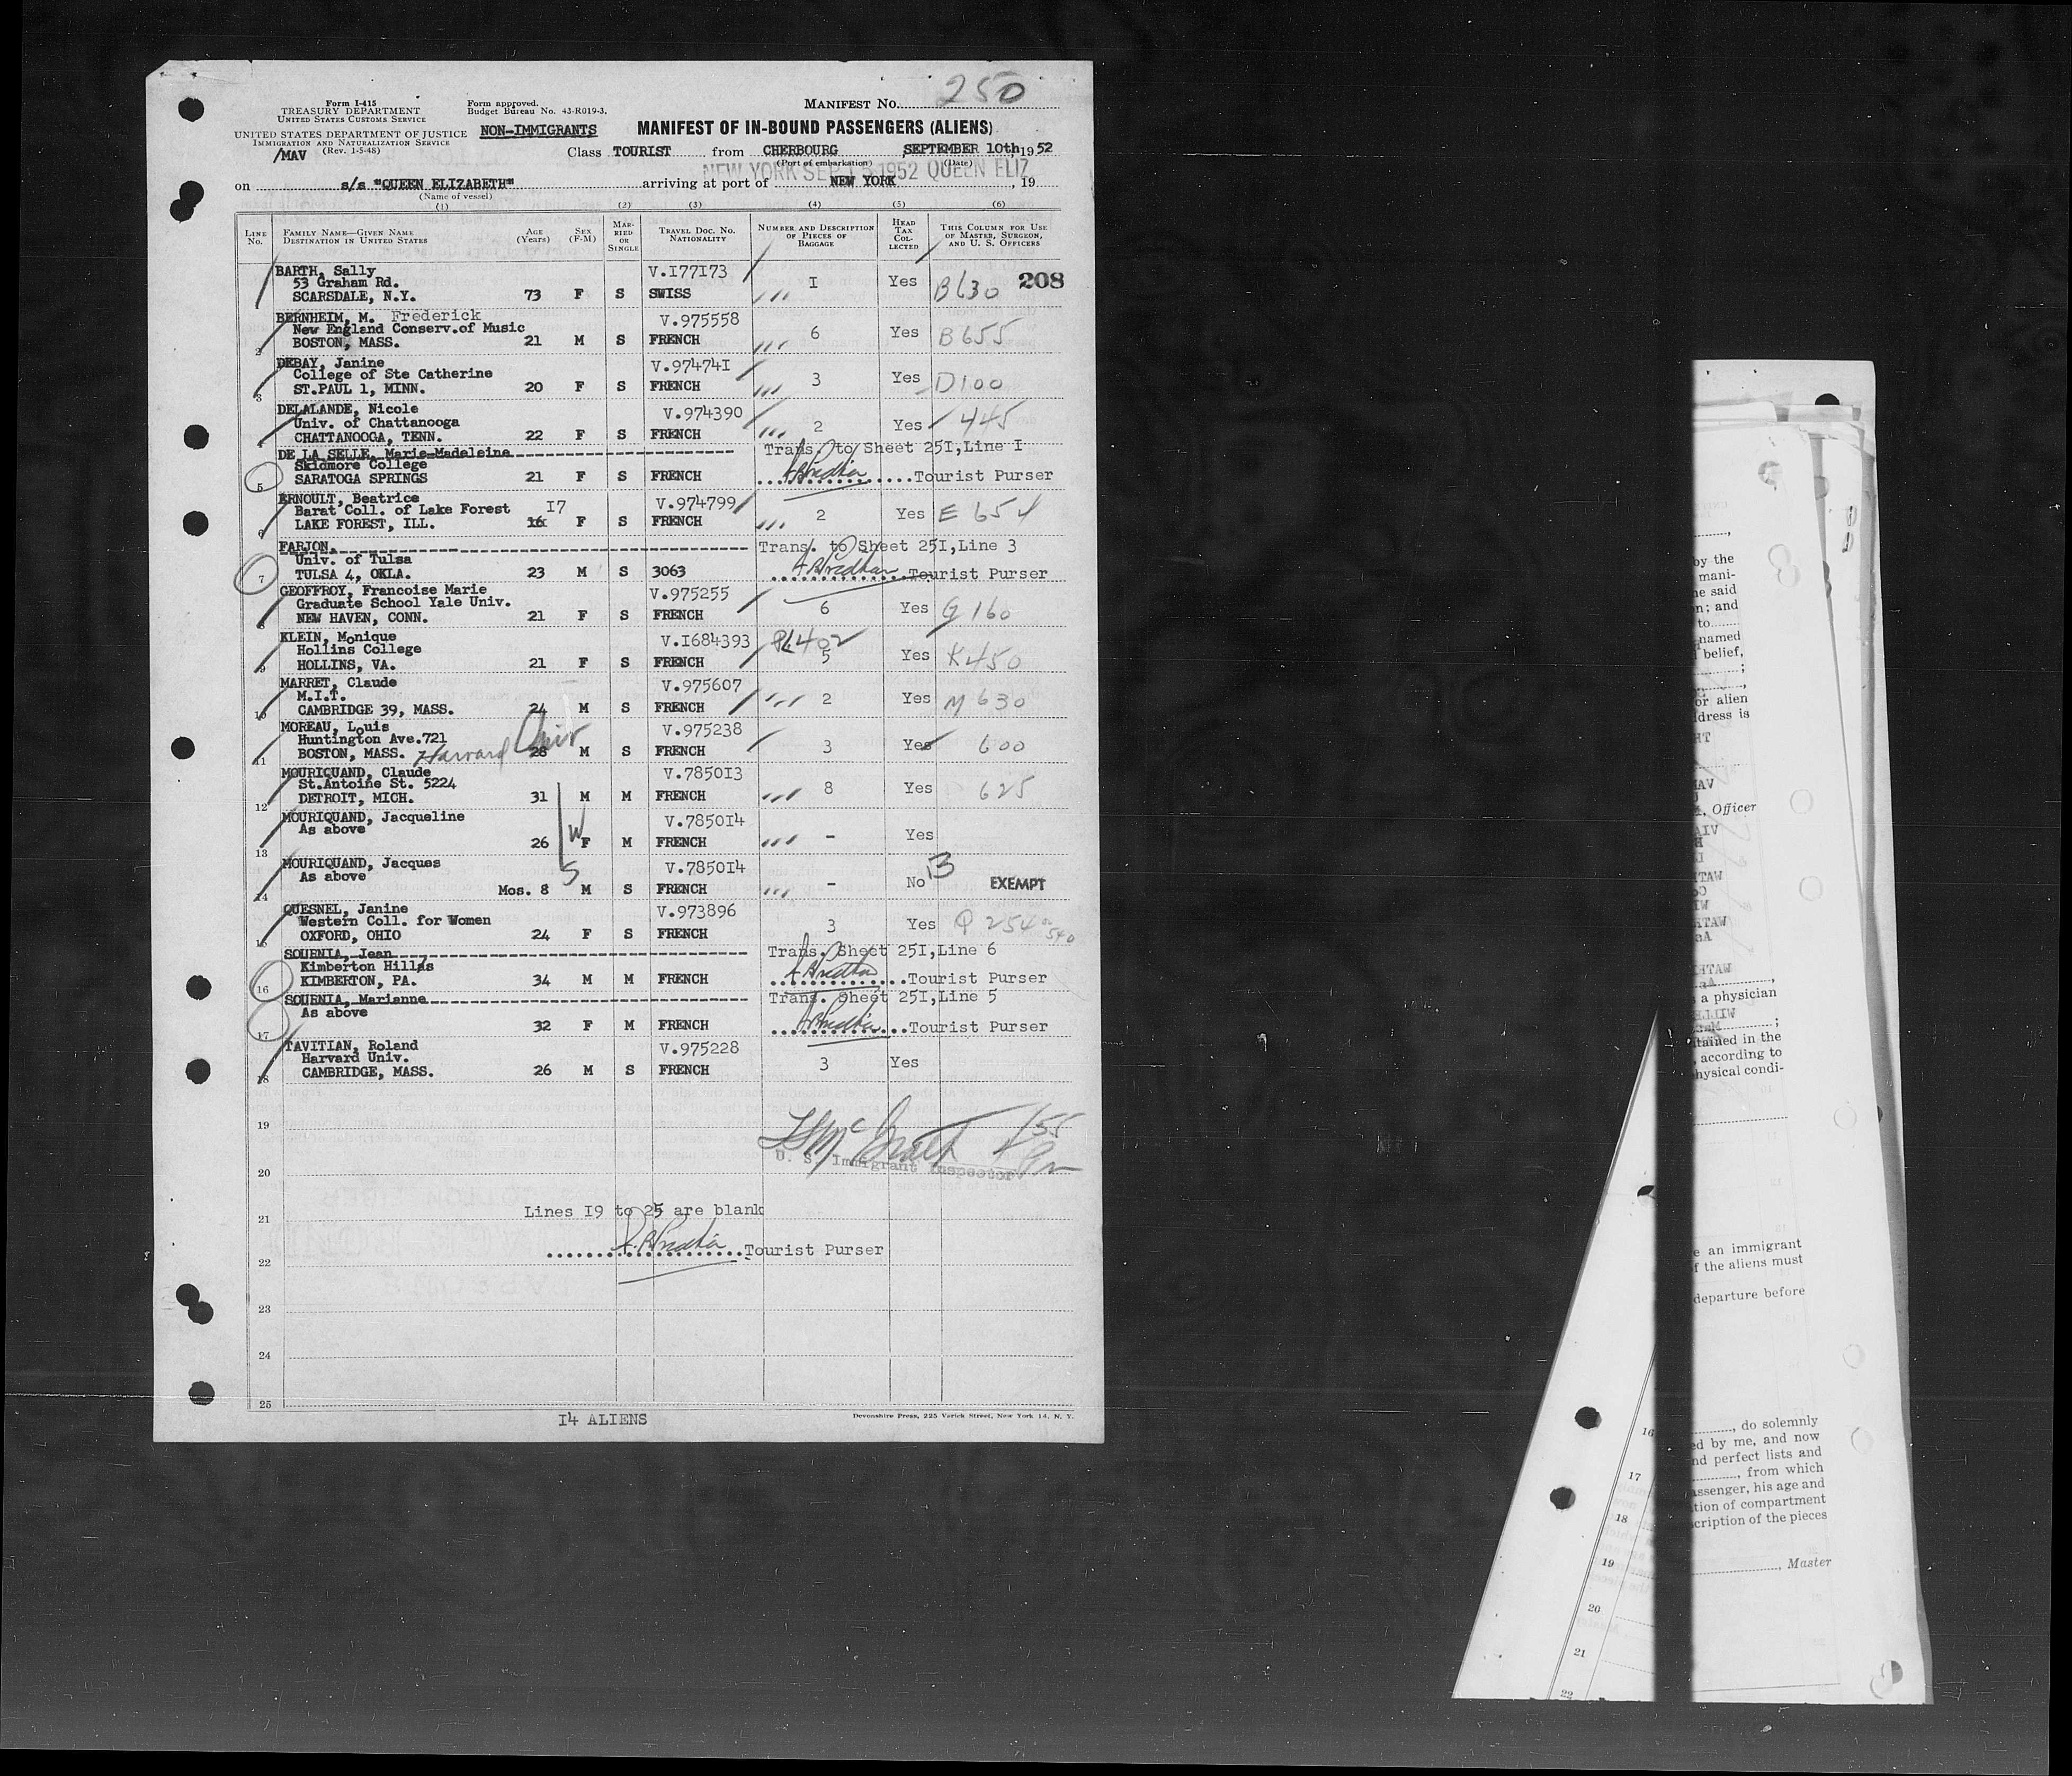 MANIFEST NO. 250
Form I-415
TREASURY DEPARTMENT
UNITED STATES CUSTOMS SERVICE
Form approved.
Budget Bureau No. 43-R019-3.
UNITED STATES DEPARTMENT OF JUSTICE
IMMIGRATION AND NATURALIZATION SERVICE
(Rev. 1-5-48)
/MAV
NON-IMMIGRANTS MANIFEST OF IN-BOUND PASSENGERS (ALIENS)
Class TOURIST from CHERBOURG, SEPTEMBER 10th, 1952
(Port of embarkation) (Date)
NEW YORK SEP 1952 QUEEN ELIZ
on s/s "QUEEN ELIZABETH" arriving at port of NEW YORK, 19
(Name of vessel)
(1) (2) (3) (4) (5) (6)
LINE No. FAMILY NAME—GIVEN NAME DESTINATION IN UNITED STATES AGE (Years) SEX (F-M) MARRIED OR SINGLE TRAVEL DOC. NO. NATIONALITY NUMBER AND DESCRIPTION OF PIECES OF BAGGAGE HEAD TAX COLLECTED THIS COLUMN FOR USE OF MASTER, SURGEON, AND U. S. OFFICERS
BARTH, Sally V.177173
53 Graham Rd. I Yes B630 208
SCARSDALE, N.Y. 73 F S SWISS
BERNHEIM, M. Frederick V.975558
New England Conserv.of Music 6 Yes B655
2 BOSTON, MASS. 21 M S FRENCH
DEBAY, Janine V.974741
College of Ste Catherine 3 Yes D100
3 ST.PAUL 1, MINN. 20 F S FRENCH
DELALANDE, Nicole V.974390
Univ. of Chattanooga 2 Yes 445
4 CHATTANOOGA, TENN. 22 F S FRENCH
DE LA SELLE, Marie-Madeleine Trans. to Sheet 251,Line I
Skidmore College
5 SARATOGA SPRINGS 21 F S FRENCH Tourist Purser
ERNOULT, Beatrice V.974799
Barat Coll. of Lake Forest 17 2 Yes E 654
6 LAKE FOREST, ILL. 16 F S FRENCH
FARJON, Trans. to Sheet 251,Line 3
Univ. of Tulsa
7 TULSA 4, OKLA. 23 M S 3063 Tourist Purser
GEOFFROY, Francoise Marie V.975255
Graduate School Yale Univ. 6 Yes G 160
8 NEW HAVEN, CONN. 21 F S FRENCH
KLEIN, Monique V.1684393
Hollins College 5 Yes K450
9 HOLLINS, VA. 21 F S FRENCH
MARRET, Claude V.975607
M.I.T. 2 Yes M 630
10 CAMBRIDGE 39, MASS. 24 M S FRENCH
MOREAU, Louis V.975238
Huntington Ave.721 3 Yes 600
11 BOSTON, MASS. Harvard Univ 28 M S FRENCH
MOURIQUAND, Claude V.785013
St.Antoine St. 5224 8 Yes 625
12 DETROIT, MICH. 31 M M FRENCH
MOURIQUAND, Jacqueline V.785014
As above - Yes
13 26 W F M FRENCH
MOURIQUAND, Jacques V.785014
As above - No 13 EXEMPT
14 Mos. 8 S M S FRENCH
QUESNEL, Janine V.973896
Western Coll. for Women 3 Yes Q 254
15 OXFORD, OHIO 24 F S FRENCH
SOUENIA, Jean Trans. Sheet 251,Line 6
Kimberton Hills
16 KIMBERTON, PA. 34 M M FRENCH Tourist Purser
SOUENIA, Marianne Trans. Sheet 251,Line 5
As above
17 32 F M FRENCH Tourist Purser
TAVITIAN, Roland V.975228
Harvard Univ. 3 Yes
18 CAMBRIDGE, MASS. 26 M S FRENCH
19
U. S. Immigrant Inspector.
20
Lines 19 to 25 are blank
21
Tourist Purser
22
23
24
25
14 ALIENS
Devonshire Press, 225 Varick Street, New York 14, N. Y.
by the
mani-
said
n; and
to
named
belief,
or alien
ddress is
, Officer
a physician
tained in the
, according to
hysical condi-
e an immigrant
f the aliens must
departure before
, do solemnly
ed by me, and now
nd perfect lists and
, from which
assenger, his age and
tion of compartment
cription of the pieces
, Master
16
17
18
19
20
21
22